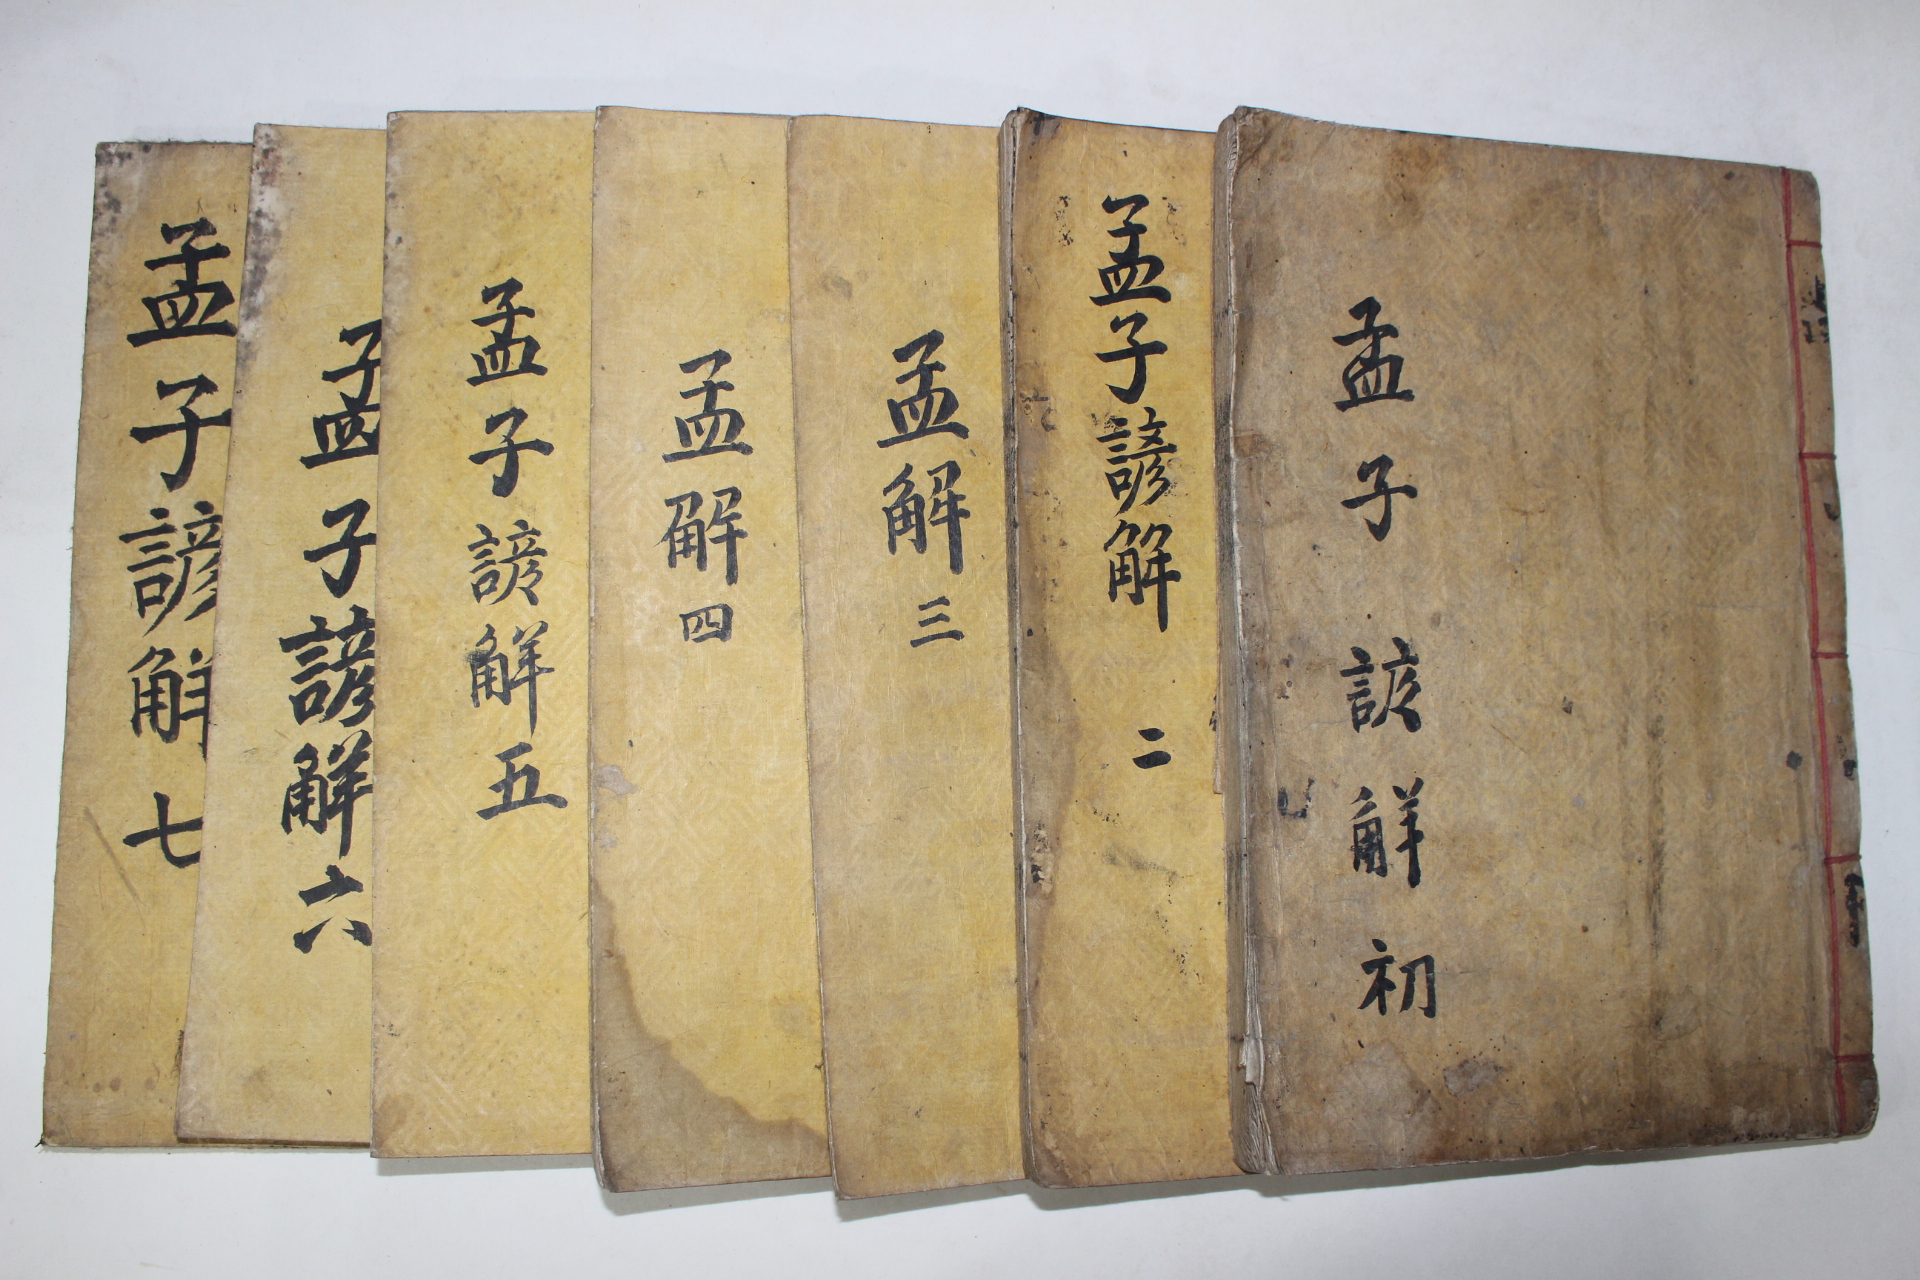 孟子諺解初
孟子諺解 二
孟解三
孟解四
孟子諺解五
孟子諺解六
孟子諺解七